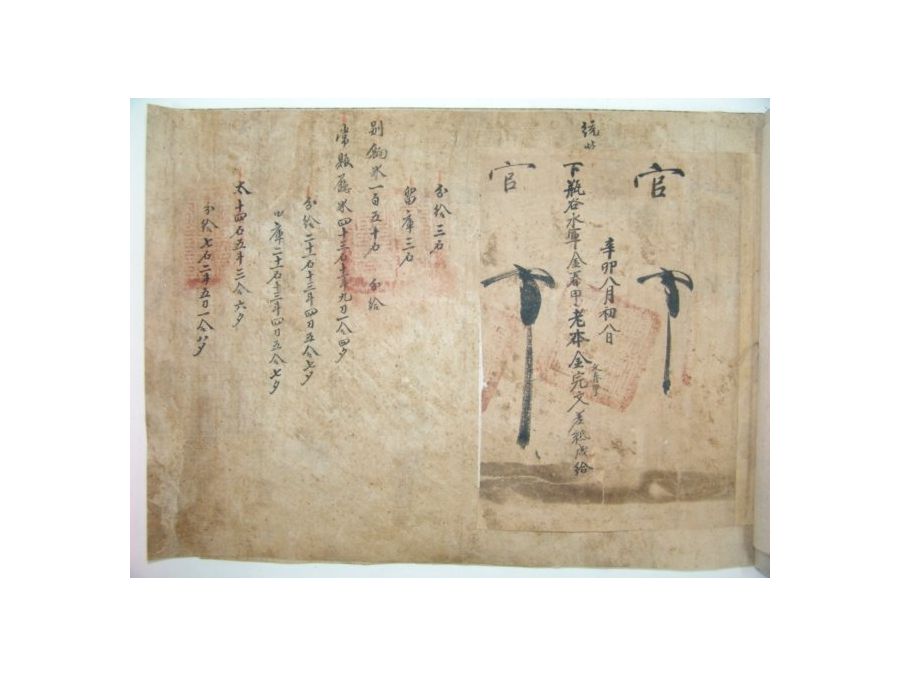 官
辛卯八月初八日
統
下瓶谷水軍金春甲老本金完文差帖成給
官
分給三石
留庫三石
別餉米一百五十石 分給
常賑廳米四十三石十一斗九刀一合四夕
分給二十一石十三斗四刀五合七夕
庫二十一石十三斗四刀五合七夕
太十四石五斗三合六夕
分給七石二斗五刀一合八夕